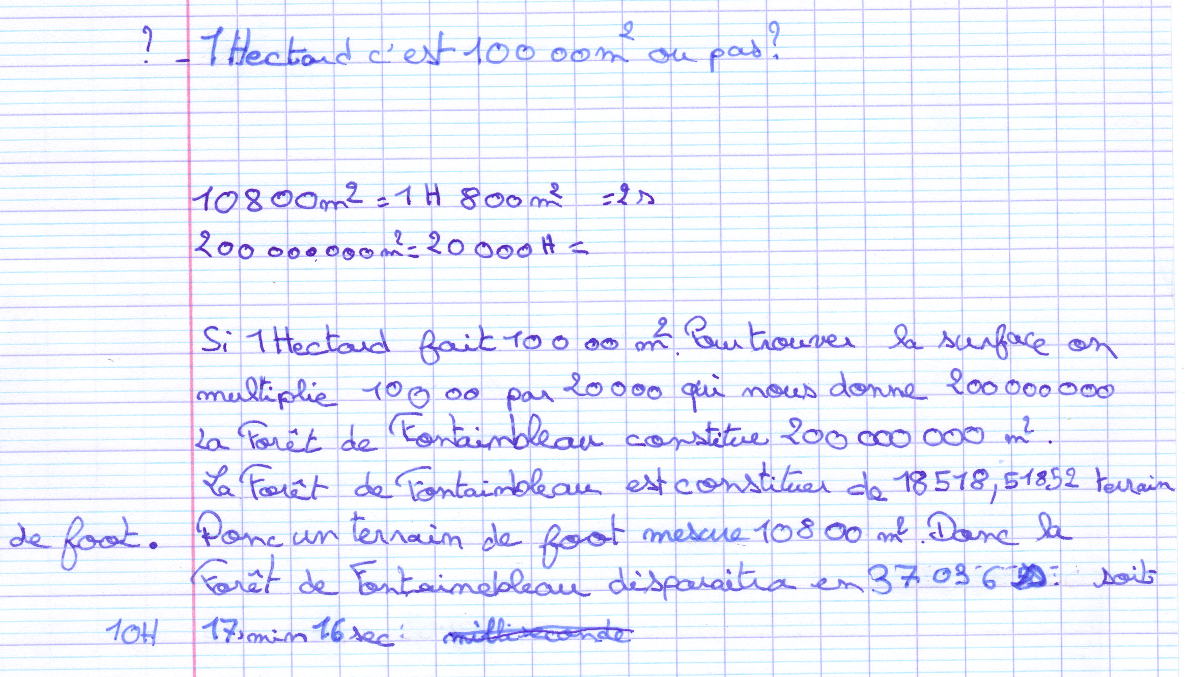 ? - 1 Hectard c'est 100 00 m² ou pas?
10800m² = 1 H 800 m² = 2s
200 000.000 m² = 20 000 H =
Si 1 Hectard fait 100 00 m². Pour trouver la surface on
multiplie 100 00 par 20000 qui nous donne 200 000 000
La Forêt de Fontainbleau constitue 200 000 000 m².
La Forêt de Fontainbleau est constituer de 18518,51852 terrain
de foot. Donc un terrain de foot mesure 108 00 m². Donc la
Forêt de Fontainebleau disparaitra en 37 036 : soit
10H 17 min 16 sec :